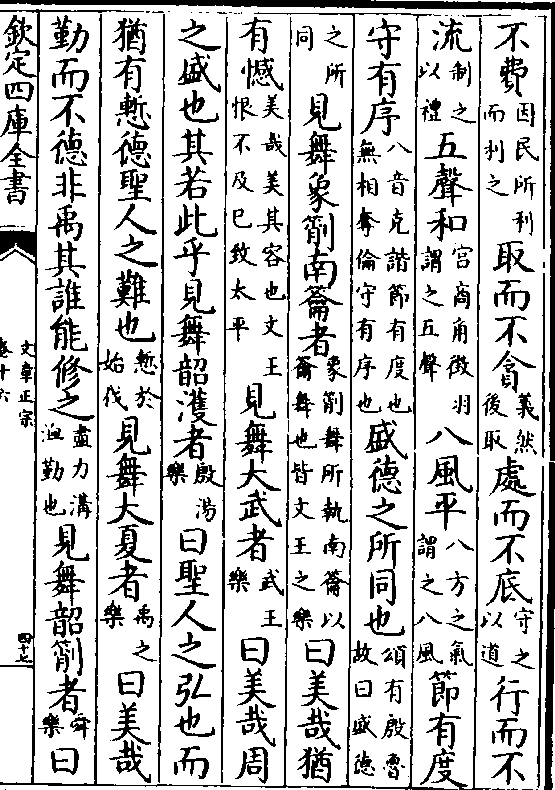 不費因民所利而利之取而不貪義然後取處而不底守之以道行而不
流制之以禮五聲和宮商角徴羽謂之五聲八風平八方之氣謂之八風節有度
守有序八音克諧節有度也無相奪倫守有序也盛德之所同也頌有殷魯故曰盛德
之所同見舞象箾南籥者象箾舞所執南籥以籥舞也皆文王之樂曰美哉猶
有憾美哉美其容也文王恨不及已致太平見舞大武者武王樂曰美哉周
之盛也其若此乎見舞韶濩者殷湯樂曰聖人之弘也而
猶有慙德聖人之難也慙於始伐見舞大夏者禹之樂曰美哉
勤而不德非禹其誰能修之盡力溝洫勤也見舞韶箾者舜樂曰
欽定四庫全書
文章正宗
卷十六
四十七